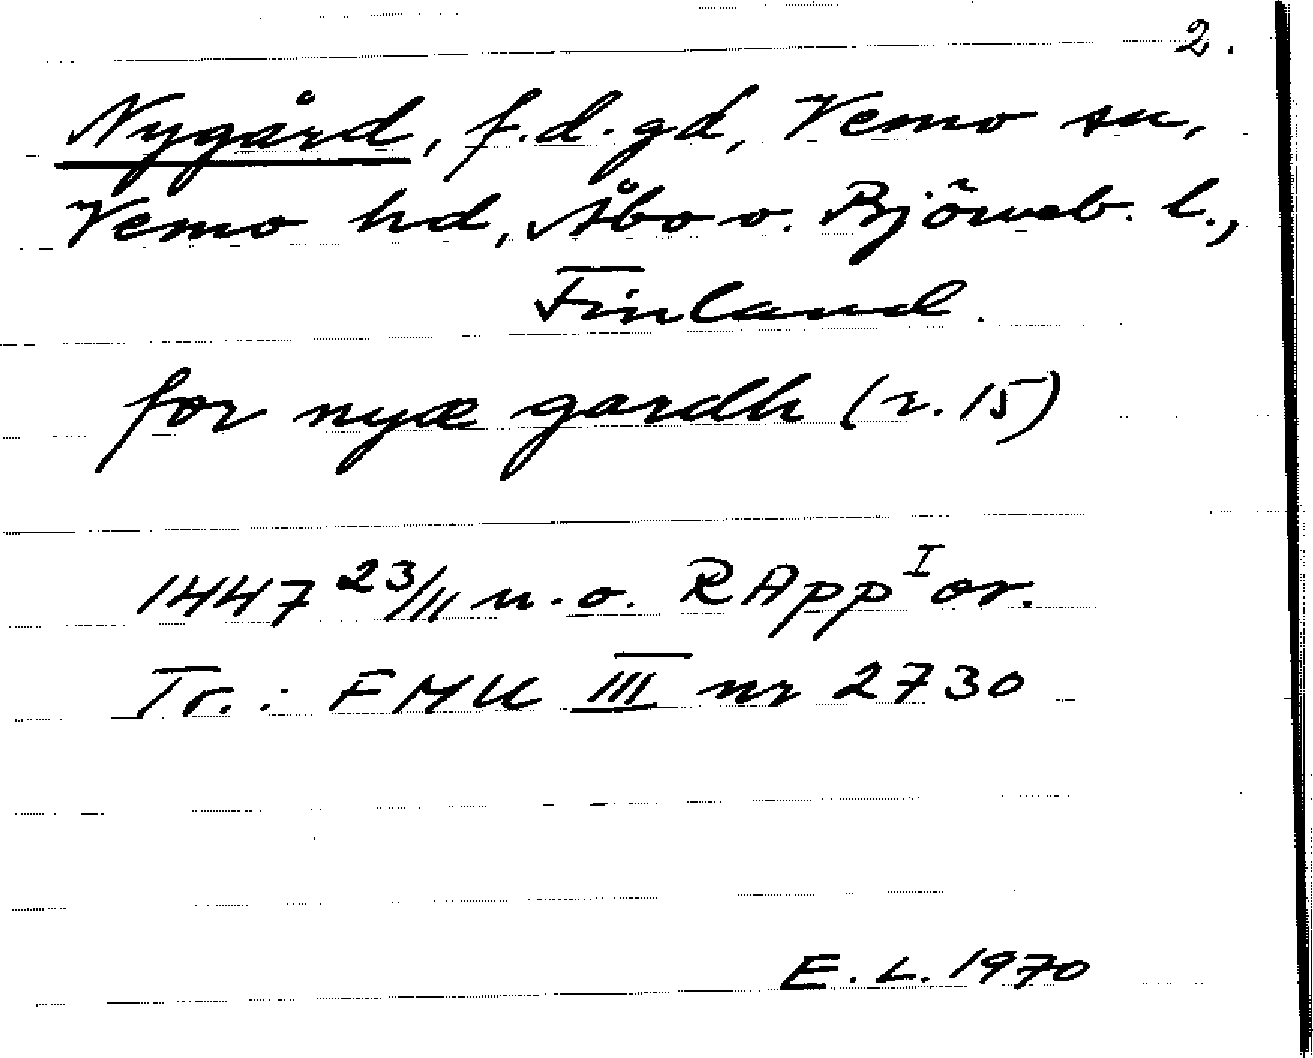 2.
Nygård, f.d. gd, Vemo sn,
Vemo hd, Åbo o. Björneb. l.,
Finland.
for nyæ gardh (r. 15)
1447 23/11 u.o. RApp I or.
Tr.: FMU III nr 2730
E. L. 1970